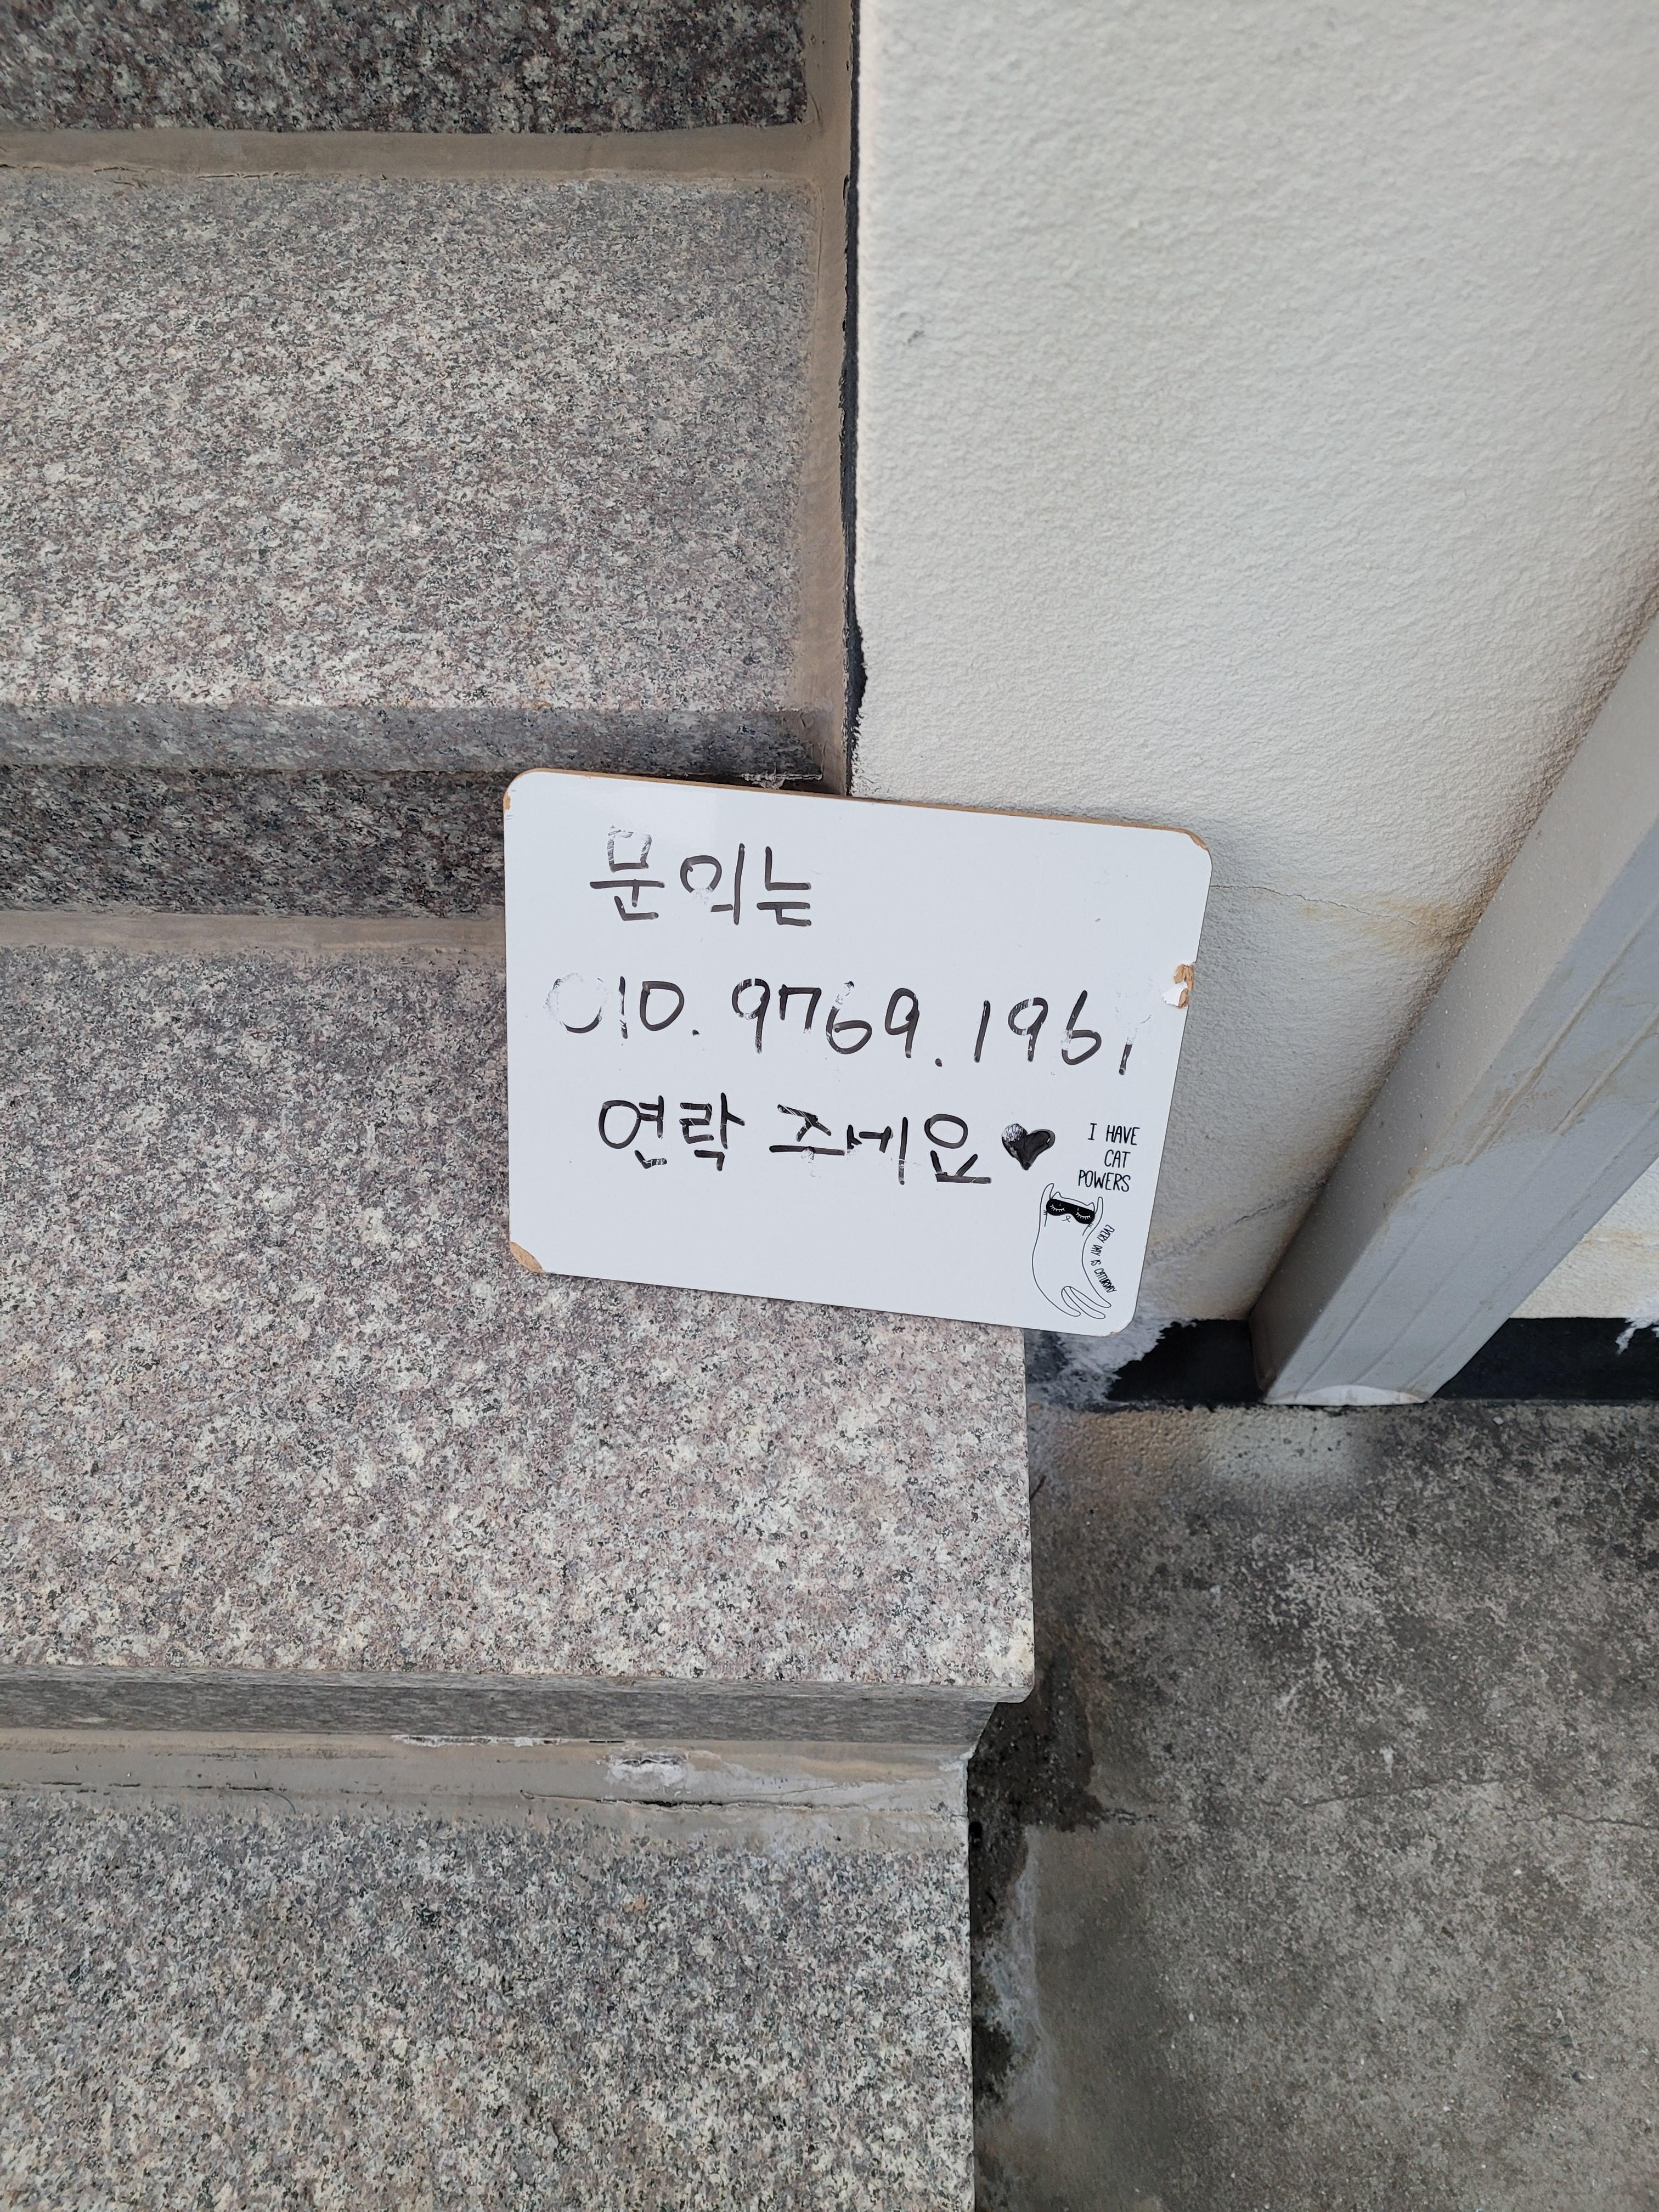 문의는
010.9769.1961
연락 주세요♥
I HAVE
CAT
POWERS
EVERY DAY IS CATURDAY